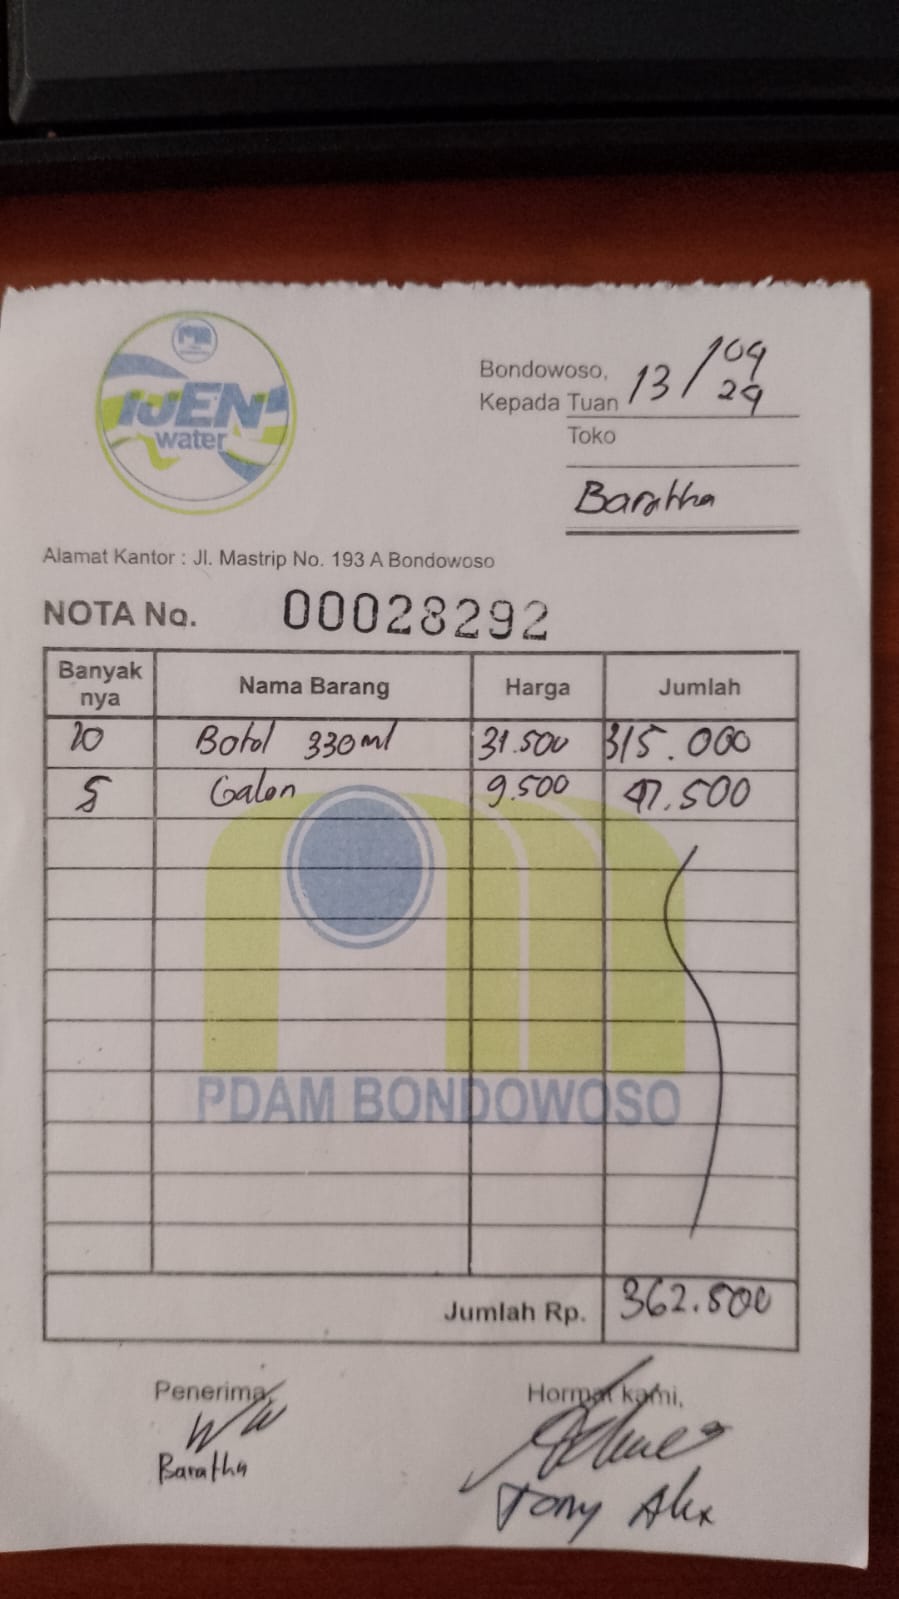 IJEN
water
Bondowoso, 13/09
24
Kepada Tuan
Toko
Baratha
Alamat Kantor : Jl. Mastrip No. 193 A Bondowoso
NOTA No. 00028292
Banyak nya Nama Barang Harga Jumlah
10 Botol 330ml 31.500 315.000
5 Galon 9.500 47.500
PDAM BONDOWOSO
Jumlah Rp. 362.500
Penerima, Hormat kami,
Baratha
Tony Alex